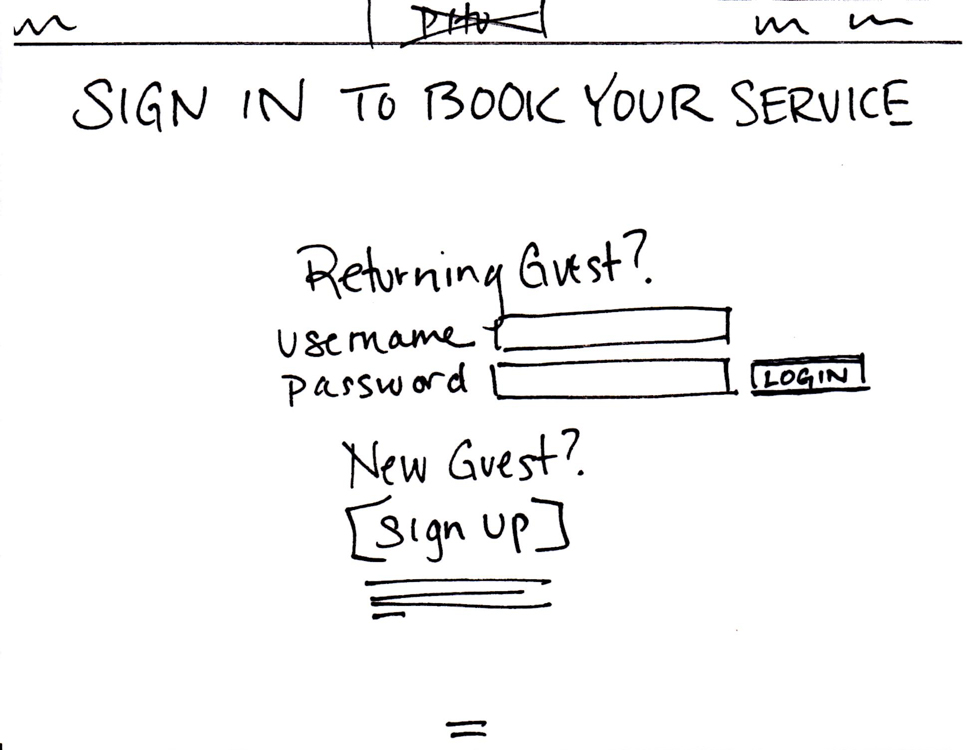 SIGN IN TO BOOK YOUR SERVICE
Returning Guest?
username
password LOGIN
New Guest?
[Sign up]